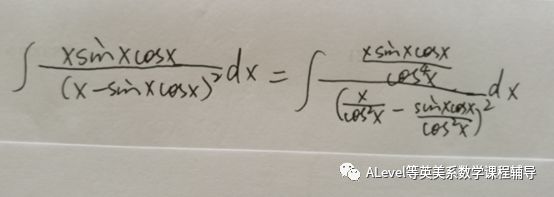 ∫ \frac{x sin x cos x}{(x - sin x cos x)^2} dx = ∫ \frac{\frac{x sin x cos x}{cos^4 x}}{(\frac{x}{cos^2 x} - \frac{sin x cos x}{cos^2 x})^2} dx
ALevel等英美系数学课程辅导